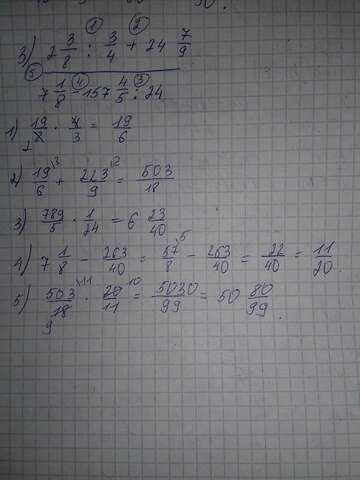 3) (2 3/8 : 3/4 + 24 7/9) / (7 1/8 - 157 4/5 : 24)
1) 19/8 · 4/3 = 19/6
2) 19/6 + 223/9 = 503/18
3) 789/5 · 1/24 = 6 23/40
4) 7 1/8 - 263/40 = 57/8 - 263/40 = 22/40 = 11/20
5) 503/18 · 20/11 = 5030/99 = 50 80/99